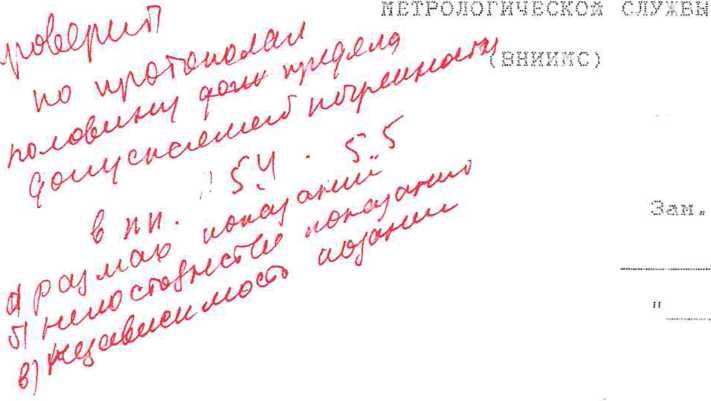 МЕТРОЛОГИЧЕСКОЙ СЛУЖБЫ
(ВНИИМС)
Зам.
"
проверит
по протоколам
половину доли предела
допускаемой погрешности
в пп. 5.4. 5.5
а) размах показаний
б) непостоянство показаний
в) независимость